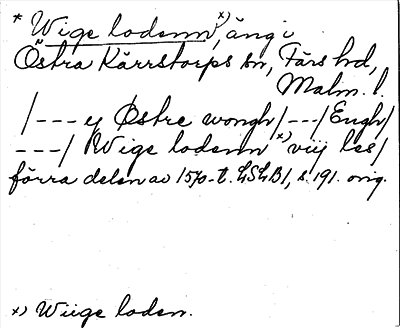 * Wige lodenn x), äng i
Östra Kärrstorps sn, Färs hd,
Malm. l.
/--- y Østre wongh/---/Engh/
---/ Wige lodenn x) viij les/
förra delen av 1570-t. LSLB1, s. 191. orig.
x) Wiige loden.